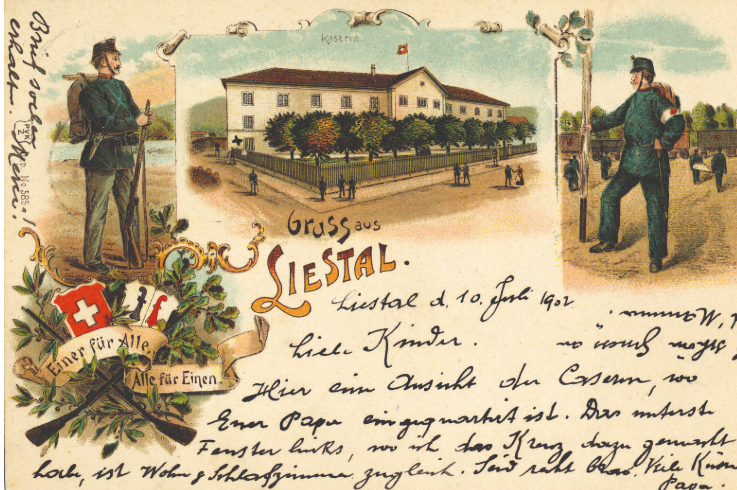 Kaserne.
Gruss aus
LIESTAL.
Einer für Alle,
Alle für Einen.
No 585
Brief soeben
erhalten.
Liestal d. 10. Juli 1902
Liebe Kinder.
Hier eine Ansicht der Casern, wo
Euer Papa einquartirt ist. Das unterste
Fenster links, wo ich das Kreuz dazu gemacht
habe, ist Wohn & Schlafzimmer zugleich. Seid recht brav. Viele Küsse
Papa.